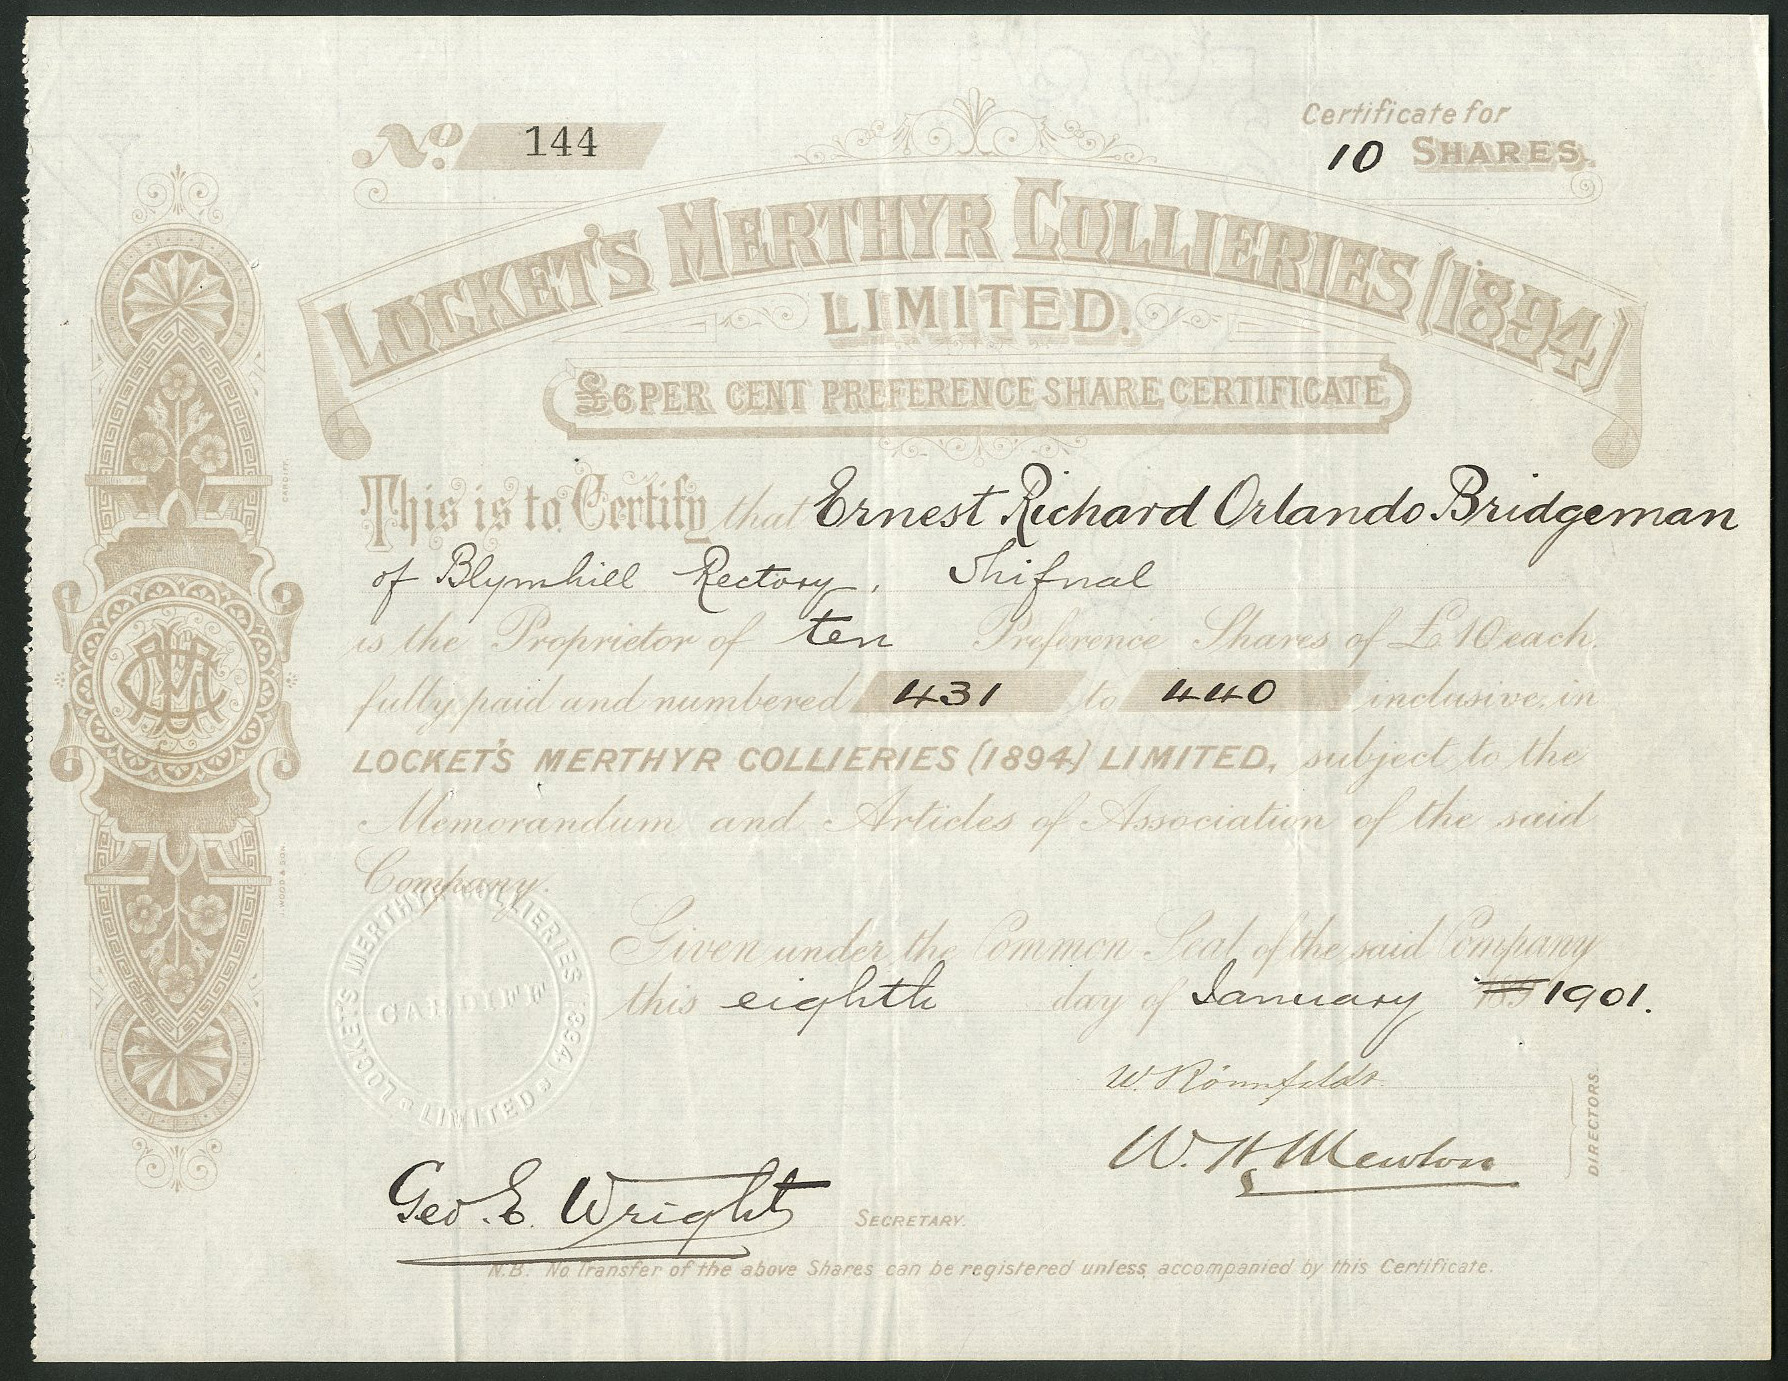 No. 144
Certificate for
10 SHARES.
LOCKET'S MERTHYR COLLIERIES (1894)
LIMITED.
£6 PER CENT PREFERENCE SHARE CERTIFICATE
This is to Certify that Ernest Richard Orlando Bridgeman
of Blymhill Rectory, Shifnal
is the Proprietor of ten Preference Shares of £10 each,
fully paid and numbered 431 to 440 inclusive, in
LOCKET'S MERTHYR COLLIERIES (1894) LIMITED, subject to the
Memorandum and Articles of Association of the said
Company.
Given under the Common Seal of the said Company
this eighth day of January 189 1901.
LOCKET'S MERTHYR COLLIERIES (1894) LIMITED
CARDIFF
W. Rönnfeldt
W. H. Mewton
DIRECTORS.
Geo. E. Wright SECRETARY.
N.B. No Transfer of the above Shares can be registered unless accompanied by this Certificate.
J. WOOD & SON
CARDIFF.